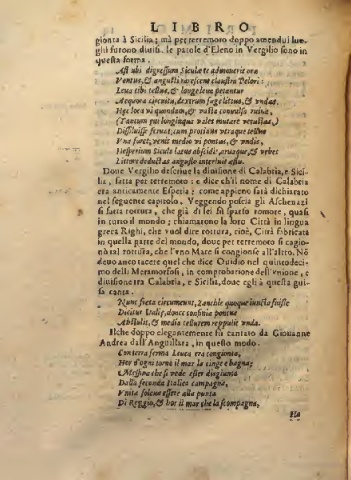 LIBRO
gionta à Sicilia; mà per terremoto doppo amendui luoghi furono diuisi. le parole d'Eleno in Vergilio sono in
questa forma.
Ast ubi digressum Siculæ te admouerit oræ
Ventus, & angusti rarescent claustra Pelori:
Leua tibi tellus, & longo leua petantur
Aequora circuitu, dextrum fuge littus, & vndas.
Hæc loca vi quondam, & vasta conuulsa ruina,
(Tantum æui longinqua valet mutare vetustas.)
Dissiluisse ferunt; cum protinus vtraque tellus
Vna foret; venit medio vi pontus, & vndis,
Hesperium Siculo latus abscidit, aruaque, & vrbes
Littore deductas angusto interluit æstu.
Doue Vergilio descriue la diuisione di Calabria, e Sicilia, fatta per terremoto: e dice ch'il nome di Calabria
era anticamente Esperia; come appieno sarà dichiarato
nel seguente capitolo. Veggendo poscia gli Aschenazi
sì fatta rottura, che già di lei fù sparso romore, quasi
in tutto il mondo; chiamarono la loro Città in lingua
greca Righi, che vuol dire rottura, cioè, Città fabricata
in quella parte del mondo, doue per terremoto fù cagionò tal rottura, che l'vno Mare si congionse all'altro. Nò
deuo anco tacere quel che dice Ouidio nel quintodecimo delli Metamorfosi, in comprobatione dell'vnione, e
diuisione trà Calabria, e Sicilia, doue egli à questa guisa canta.
Nunc freta circumeunt, Zancle quoque iuncta fuisse
Dicitur Italiæ, donec confinia pontus
Abstulit, & media tellurem reppulit vnda.
Il che doppo elegantemente fù cantato da Giouanne
Andrea dall'Anguillara, in questo modo.
Con terra ferma Leuca era congiunta,
Hor d'ogni torno il mar la cinge e bagna;
Messina che si vede esser disgiunta
Dalla feconda Italica campagna,
Vnita solea essere alla punta
Di Reggio, & hor il mar che la scompagna,